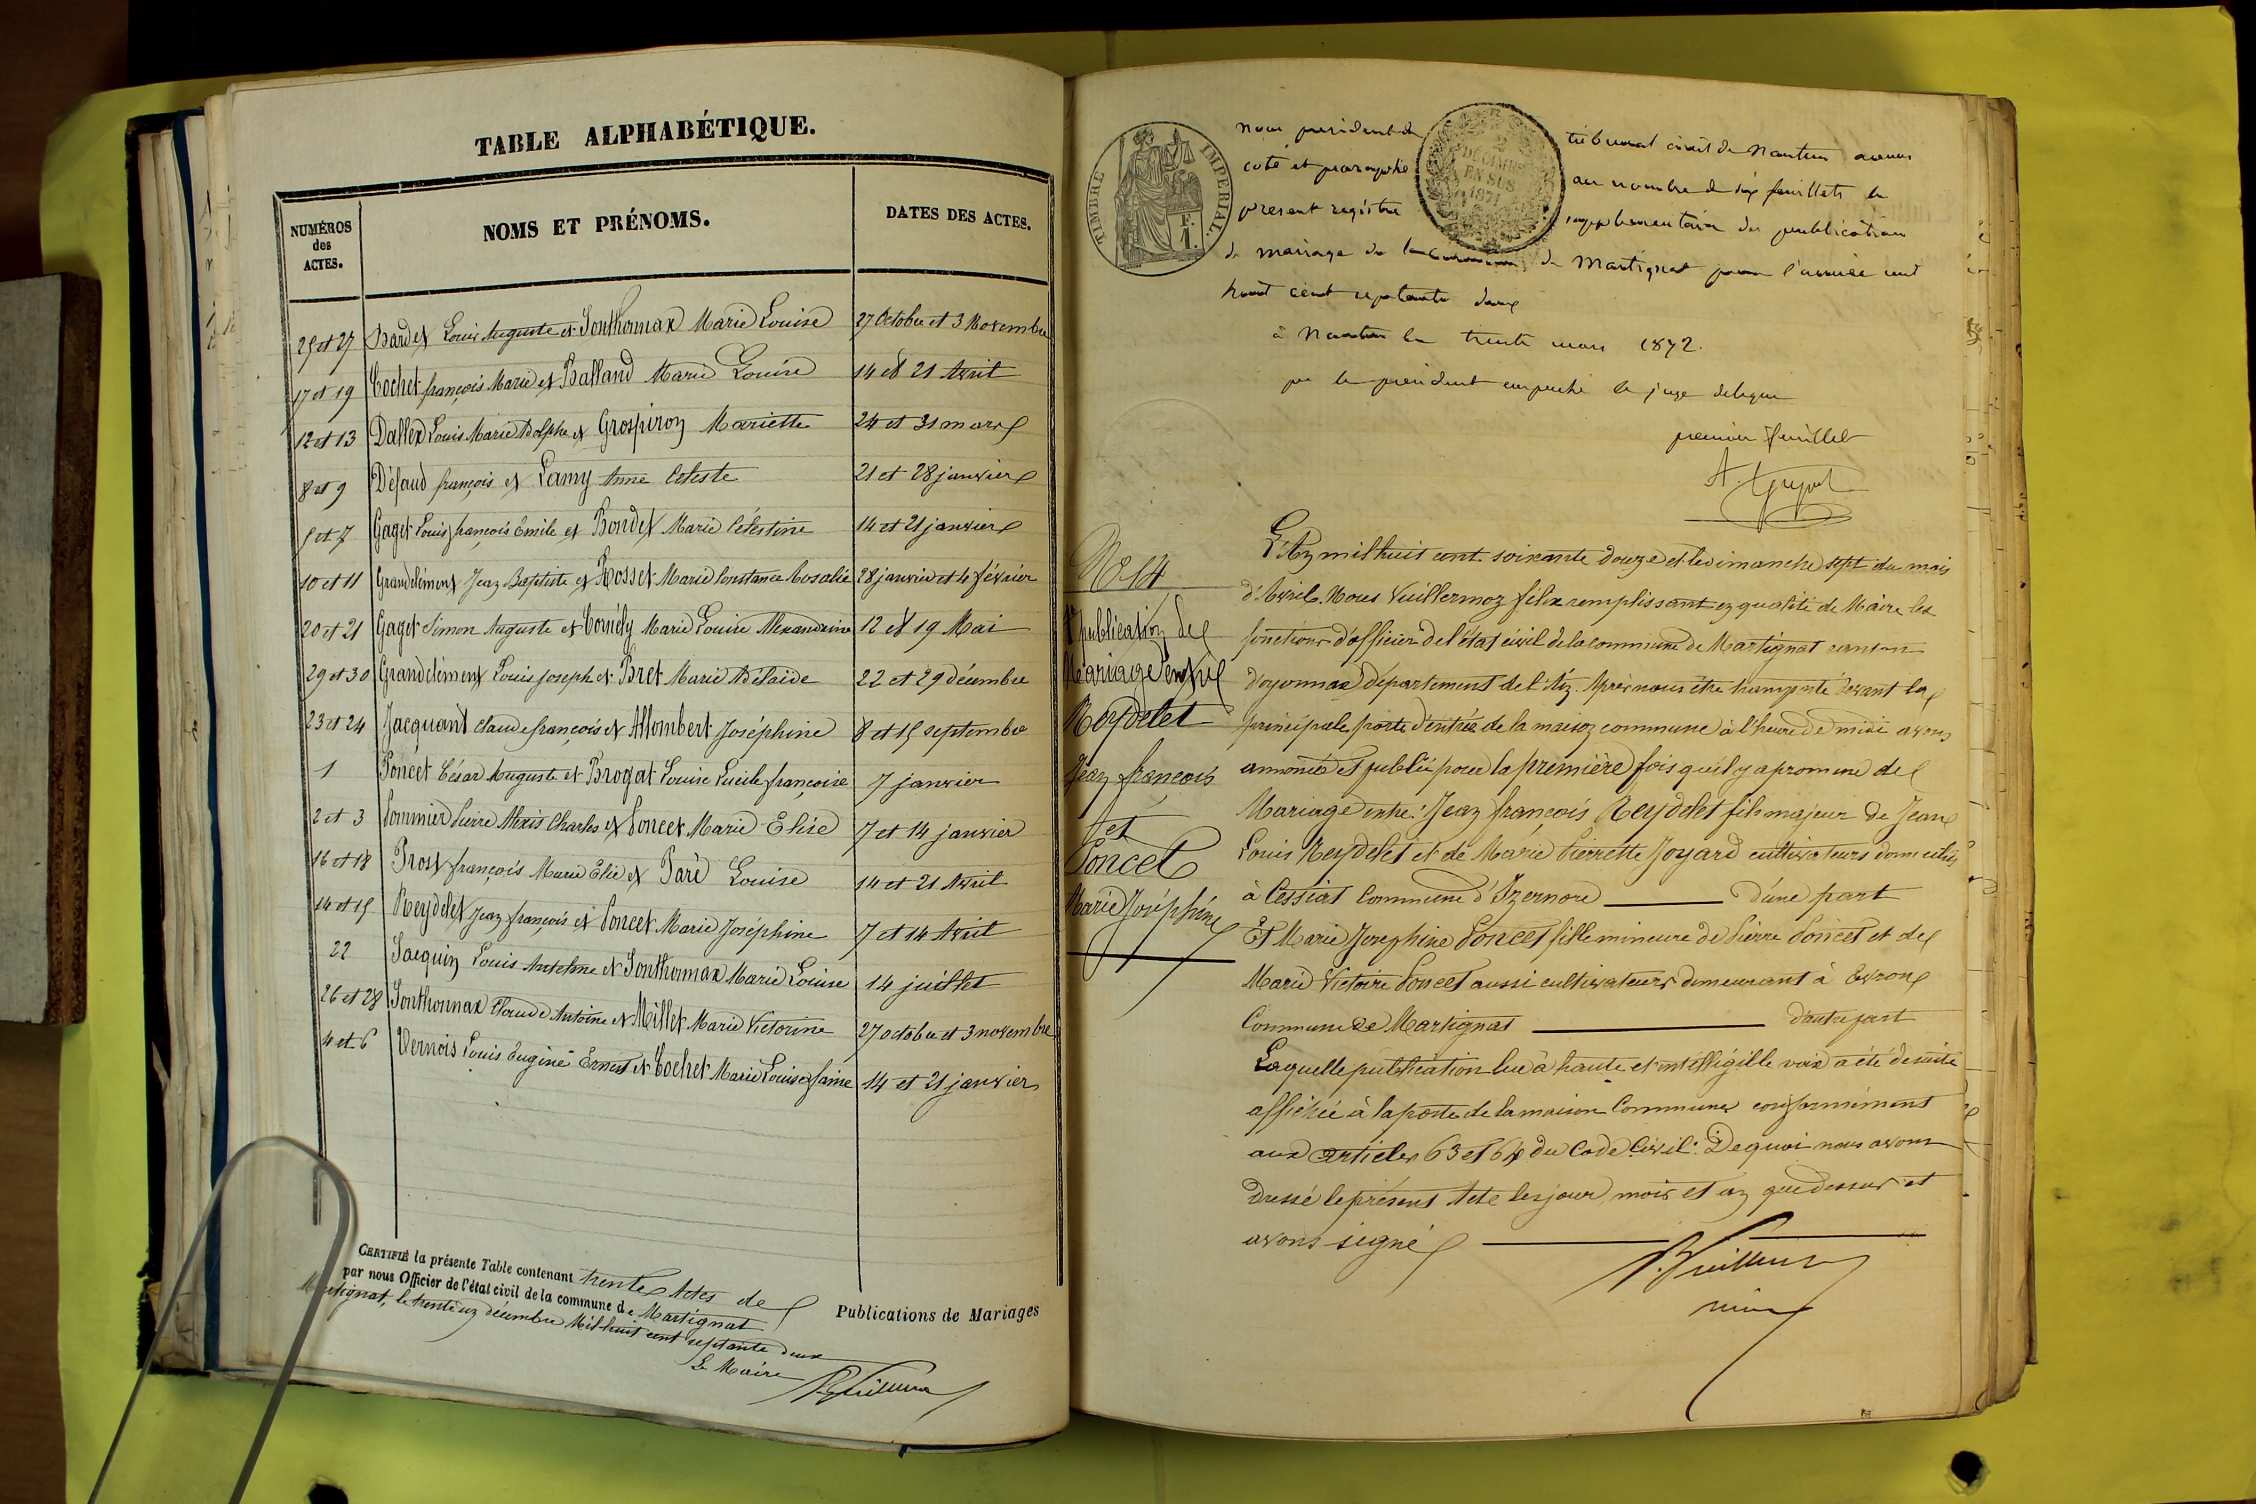 TABLE ALPHABÉTIQUE.
NUMÉROS des ACTES.
NOMS ET PRÉNOMS.
DATES DES ACTES.
25 et 27 Bardet Louis Auguste et Sonthonnax Marie Louise 27 Octobre et 3 Novembre
17 et 19 Cochet françois Marie et Balland Marie Louise 14 et 21 Avril
12 et 13 Dallex Louis Marie Adolphe et Grospiron Mariette 24 et 31 mars
8 et 9 Défaud françois et Lamy Anne Celeste 21 et 28 janvier
5 et 7 Gaget Louis françois Emile et Bondet Marie Célestine 14 et 21 janvier
10 et 11 Grandclément Jean Baptiste et Rosset Marie Constance Rosalie 28 janvier et 4 février
20 et 21 Gaget Simon Auguste et Cornély Marie Louise Alexandrine 12 et 19 Mai
29 et 30 Grandclément Louis joseph et Bret Marie Adélaïde 22 et 29 décembre
23 et 24 Jacquant claude françois et Allombert Joséphine 8 et 15 septembre
1 Poncet César Auguste et Brogat Louise Lucile françoise 7 janvier
2 et 3 Pommier Pierre Alexis Charles et Poncet Marie Elise 7 et 14 janvier
16 et 18 Prost françois Marie Elie et Paré Louise 14 et 21 Avril
14 et 15 Reydelet Jean françois et Poncet Marie Joséphine 7 et 14 Avril
22 Jacquin Louis Anthelme et Sonthonnax Marie Louise 14 juillet
26 et 28 Sonthonnax Claude Antoine et Millet Marie Victorine 27 octobre et 3 novembre
4 et 6 Vernois Louis Eugène Ernest et Cochet Marie Louise 14 et 21 janvier
CERTIFIÉ la présente Table contenant trente Actes de Publications de Mariages
par nous Officier de l'état civil de la commune de Martignat
Martignat, le trente un décembre Mil huit cent septante deux
Le Maire
TIMBRE IMPERIAL.
F. 1.
2 DÉCIMES EN SUS 1871
Nous president du tribunal civil de Nantua avons
coté et paraphé au nombre de six feuillets le
present registre supplementaire des publications
de mariage de la commune de Martignat pour l'année mil
huit cent septante deux
à Nantua le trente mars 1872.
pr le president empeché le juge delegué
premier feuillet
N° 14
1re publication de
Mariage entre
Reydelet
Jean françois
et
Poncet
Marie Joséphine
L'An mil huit cent soixante douze et le dimanche sept du mois
d'Avril. Nous Vuillermoz félix remplissant en qualité de Maire les
fonctions d'officier de l'état civil de la commune de Martignat canton
d'oyonnax département de l'Ain. Après nous être transporté devant la
principale porte d'entrée de la maison commune à l'heure de midi avons
annoncé et publié pour la première fois qu'il y a promesse de
Mariage entre: Jean françois Reydelet fils majeur de Jean
Louis Reydelet et de Marie Pierrette Joyard cultivateurs domiciliés
à Cessiat Commune d'Izernore d'une part
Et Marie Josephine Poncet fille mineure de Pierre Poncet et de
Marie Victoire Poncet aussi cultivateurs demeurant à Evron
Commune de Martignat d'autre part
Laquelle publication lue à haute et intelligible voix a été de suite
affichée à la porte de la maison Commune conformément
aux articles 63 et 64 du Code Civil. De quoi nous avons
dressé le présent Acte les jour, mois et an que dessus et
avons signé